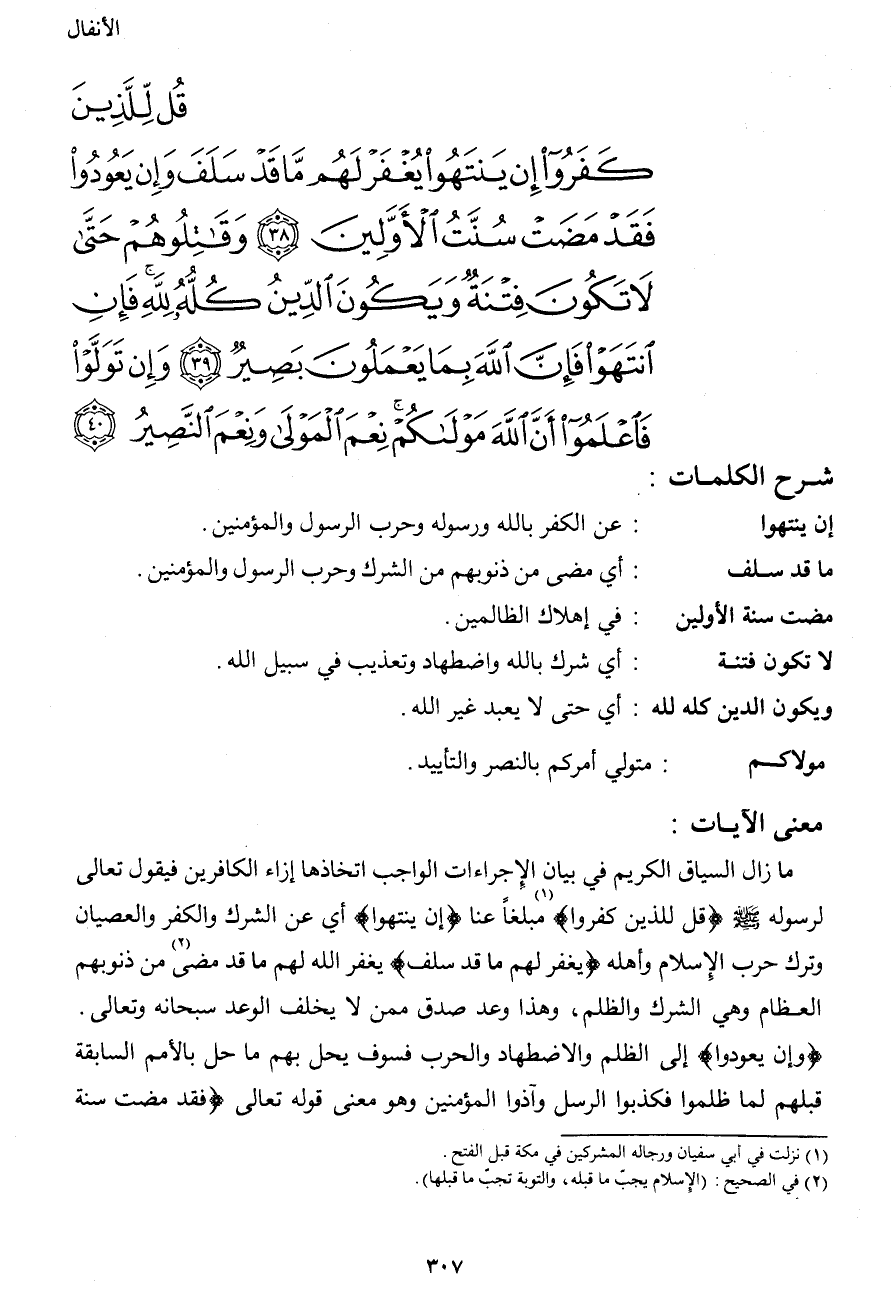 الأنفال
قُل لِّلَّذِينَ
كَفَرُوٓا۟ إِن يَنتَهُوا۟ يُغْفَرْ لَهُم مَّا قَدْ سَلَفَ وَإِن يَعُودُوا۟
فَقَدْ مَضَتْ سُنَّتُ ٱلْأَوَّلِينَ ٣٨ وَقَٰتِلُوهُمْ حَتَّىٰ
لَا تَكُونَ فِتْنَةٌ وَيَكُونَ ٱلدِّينُ كُلُّهُۥ لِلَّهِ ۚ فَإِنِ
ٱنتَهَوْا۟ فَإِنَّ ٱللَّهَ بِمَا يَعْمَلُونَ بَصِيرٌ ٣٩ وَإِن تَوَلَّوْا۟
فَٱعْلَمُوٓا۟ أَنَّ ٱللَّهَ مَوْلَىٰكُمْ ۚ نِعْمَ ٱلْمَوْلَىٰ وَنِعْمَ ٱلنَّصِيرُ ٤٠
شرح الكلمات :
إن ينتهوا : عن الكفر بالله ورسوله وحرب الرسول والمؤمنين .
ما قد سلف : أي مضى من ذنوبهم من الشرك وحرب الرسول والمؤمنين .
مضت سنة الأولين : في إهلاك الظالمين .
لا تكون فتنة : أي شرك بالله واضطهاد وتعذيب في سبيل الله .
ويكون الدين كله لله : أي حتى لا يعبد غير الله .
مولاكم : متولي أمركم بالنصر والتأييد .
معنى الآيات :
ما زال السياق الكريم في بيان الإجراءات الواجب اتخاذها إزاء الكافرين فيقول تعالى
لرسوله ﷺ ﴿قل للذين كفروا﴾(١) مبلغاً عنا ﴿إن ينتهوا﴾ أي عن الشرك والكفر والعصيان
وترك حرب الإسلام وأهله ﴿يغفر لهم ما قد سلف﴾ يغفر الله لهم ما قد مضى(٢) من ذنوبهم
العظام وهي الشرك والظلم، وهذا وعد صدق ممن لا يخلف الوعد سبحانه وتعالى .
﴿وإن يعودوا﴾ إلى الظلم والاضطهاد والحرب فسوف يحل بهم ما حل بالأمم السابقة
قبلهم لما ظلموا فكذبوا الرسل وآذوا المؤمنين وهو معنى قوله تعالى ﴿فقد مضت سنة
(١) نزلت في أبي سفيان ورجاله المشركين في مكة قبل الفتح .
(٢) في الصحيح : (الإسلام يجبّ ما قبله، والتوبة تجبّ ما قبلها) .
٣٠٧